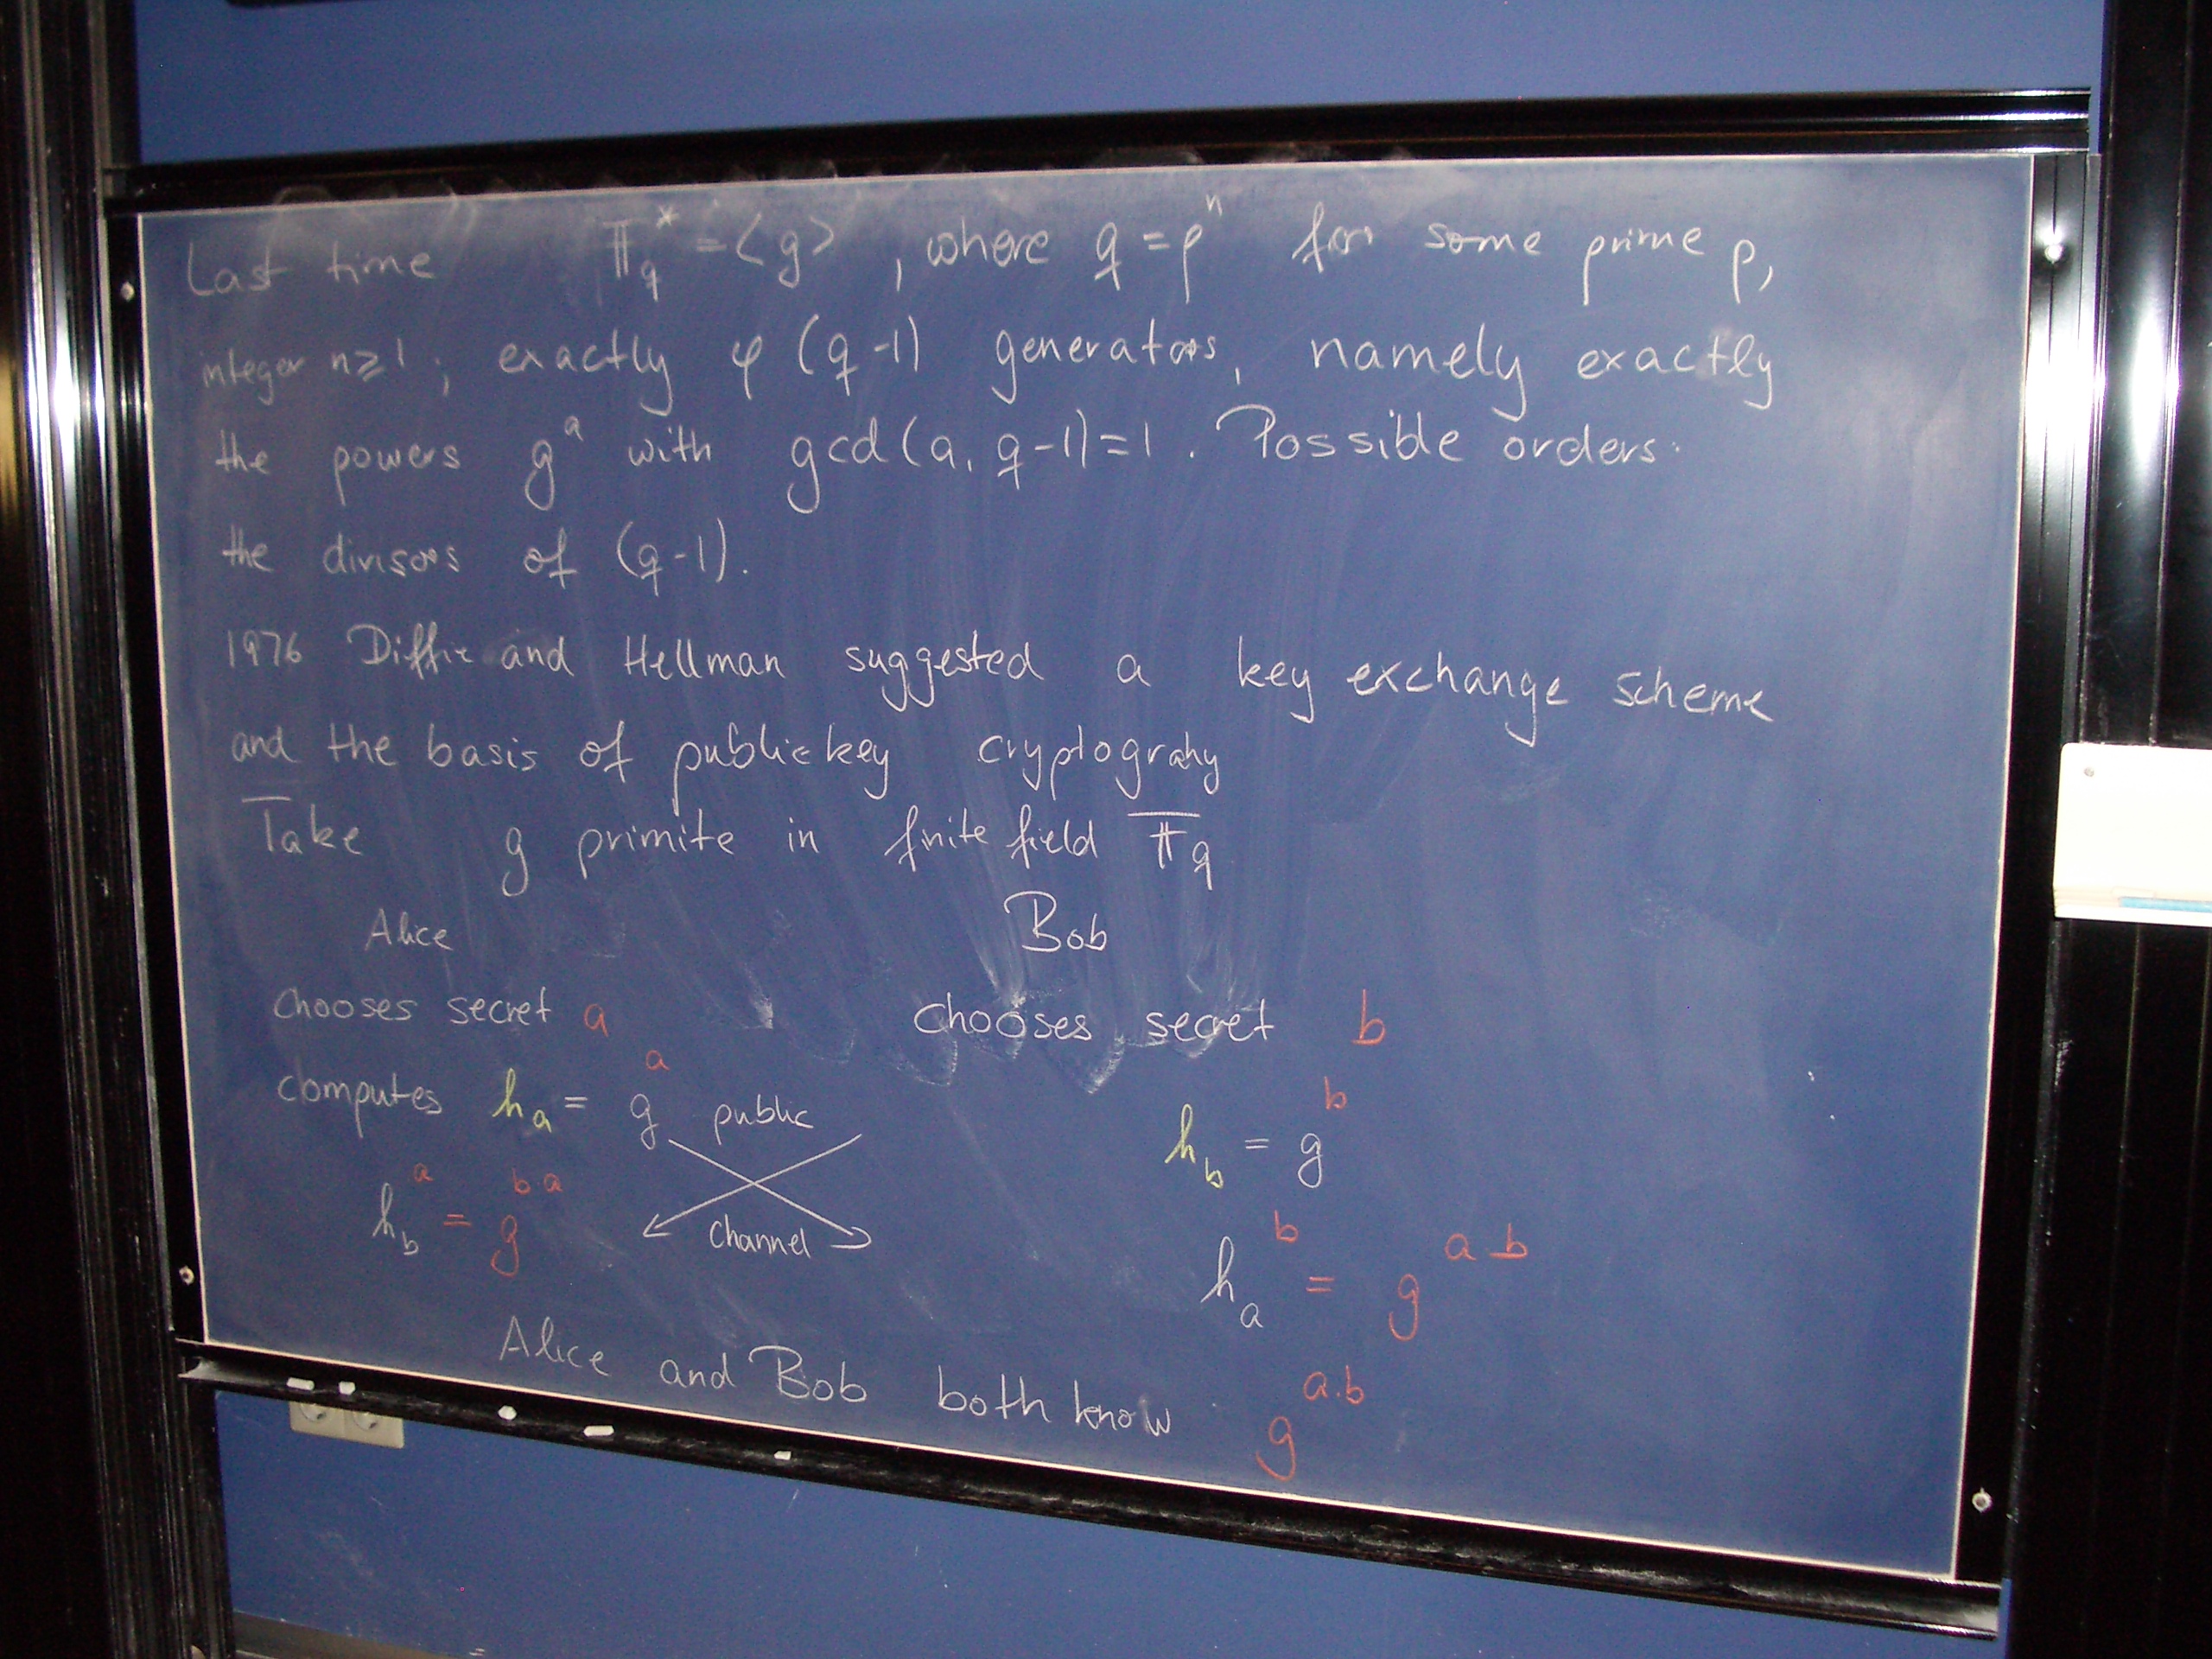 Last time 𝔽_q^* = <g>, where q = p^n for some prime p,
integer n ≥ 1; exactly φ(q-1) generators, namely exactly
the powers g^a with gcd(a, q-1) = 1. Possible orders:
the divisors of (q-1).
1976 Diffie and Hellman suggested a key exchange scheme
and the basis of public key cryptograhy
Take g primite in finite field 𝔽_q
Alice Bob
chooses secret a chooses secret b
computes h_a = g^a public h_b = g^b
h_b^a = g^{b·a} channel h_a^b = g^{ab}
Alice and Bob both know g^{a.b}